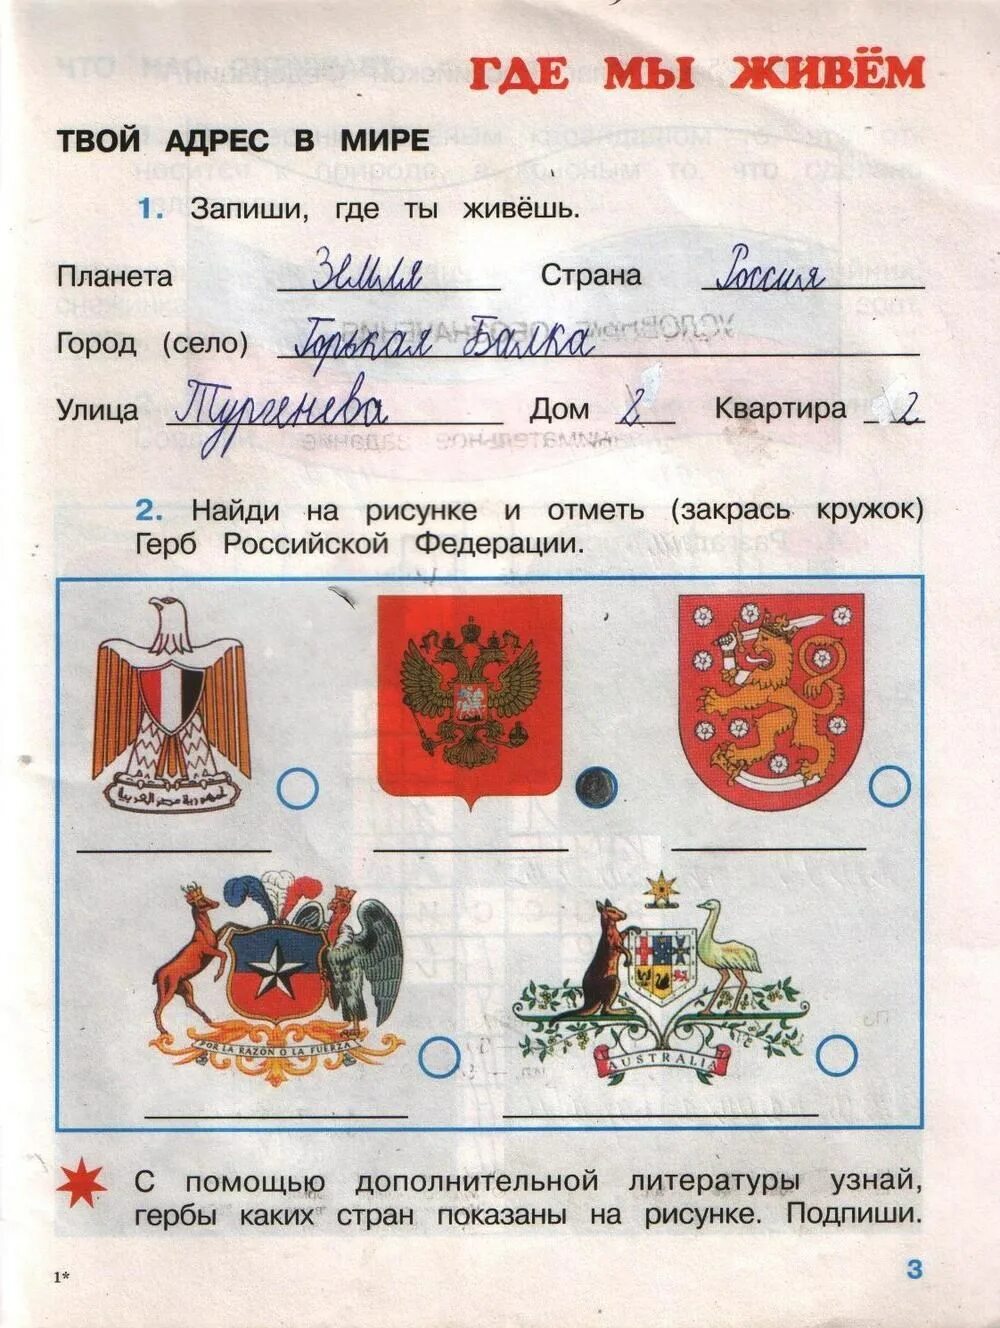 ГДЕ МЫ ЖИВЁМ
ТВОЙ АДРЕС В МИРЕ
1. Запиши, где ты живёшь.
Планета Земля Страна Россия
Город (село) Горькая Балка
Улица Тургенева Дом 8 Квартира 2
2. Найди на рисунке и отметь (закрась кружок)
Герб Российской Федерации.
جمهورية مصر العربية
POR LA RAZON O LA FUERZA
AUSTRALIA
С помощью дополнительной литературы узнай,
гербы каких стран показаны на рисунке. Подпиши.
1*
3